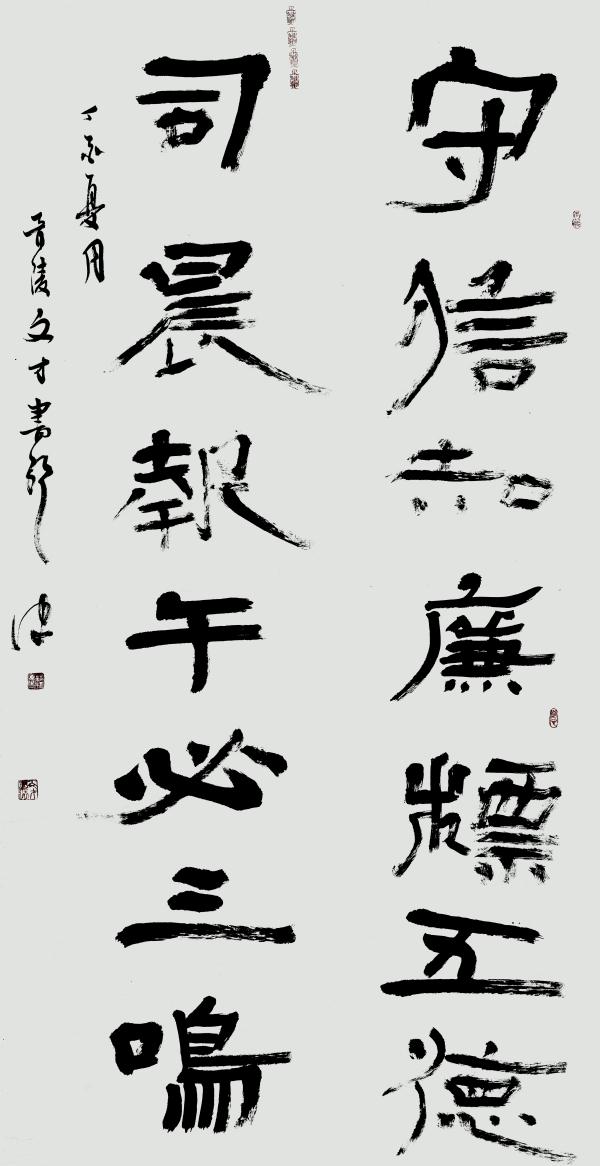 守信知廉標五德
司晨報午必三鳴
丁酉夏月
晋陵文才書